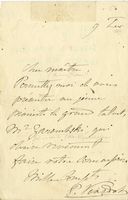 9 Fev
Cher maître,
Permettez moi de vous
présenter un jeune
pianiste de grand talent,
Mr Zarembski qui
désire vivement
faire votre connaissance
Mille